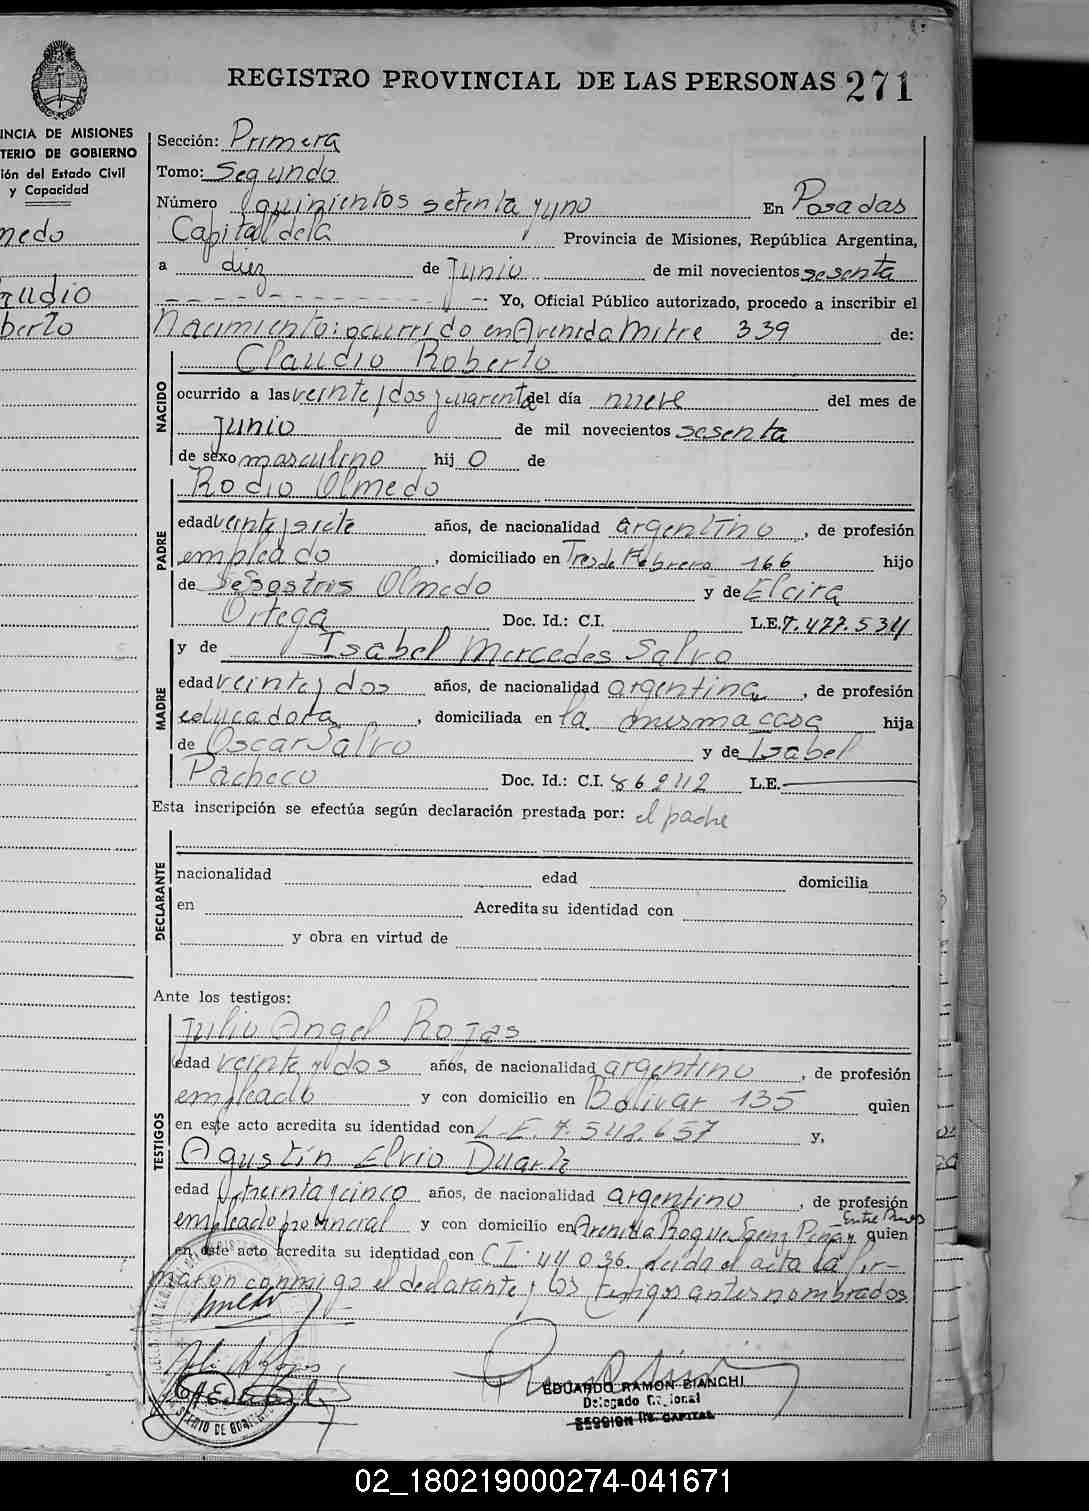 REGISTRO PROVINCIAL DE LAS PERSONAS 271
INCIA DE MISIONES
TERIO DE GOBIERNO
ión del Estado Civil
y Capacidad
medo
audio
berto
Sección: Primera
Tomo: Segundo
Número quinientos setenta y uno En Posadas
Capital de la Provincia de Misiones, República Argentina,
a diez de Junio de mil novecientos sesenta
Yo, Oficial Público autorizado, procedo a inscribir el
Nacimiento: ocurrido en Avenida Mitre 339 de:
Claudio Roberto
NACIDO
ocurrido a las veinte y dos y cuarenta del día nueve del mes de
Junio de mil novecientos sesenta
de sexo masculino hijo de
Rodio Olmedo
PADRE
edad veinte y siete años, de nacionalidad argentino, de profesión
empleado, domiciliado en Tres de Febrero 166 hijo
de Sesostris Olmedo y de Elcira
Ortega Doc. Id.: C.I. L.E. 7.477.534
y de Isabel Mercedes Salvo
MADRE
edad veinte y dos años, de nacionalidad argentina, de profesión
educadora, domiciliada en la misma casa hija
de Oscar Salvo y de Isabel
Pacheco Doc. Id.: C.I. L.E.
Esta inscripción se efectúa según declaración prestada por: el padre
DECLARANTE
nacionalidad edad domicilia
en Acredita su identidad con
y obra en virtud de
Ante los testigos:
TESTIGOS
Julio Angel Rojas
edad veinte y dos años, de nacionalidad argentino, de profesión
empleado y con domicilio en Bolivar 135 quien
en este acto acredita su identidad con L.E. 7.548.657 y,
Agustín Elvio Duarte
edad treinta y cinco años, de nacionalidad argentino, de profesión
empleado provincial y con domicilio en Avenida Roque Saenz Peña quien
en este acto acredita su identidad con C I: 44 036. Leida el acta la fir-
maron conmigo el declarante y los testigos antes nombrados
EDUARDO RAMON BIANCHI
Delegado Seccional
SECCION 1ra. CAPITAL
02_180219000274-041671